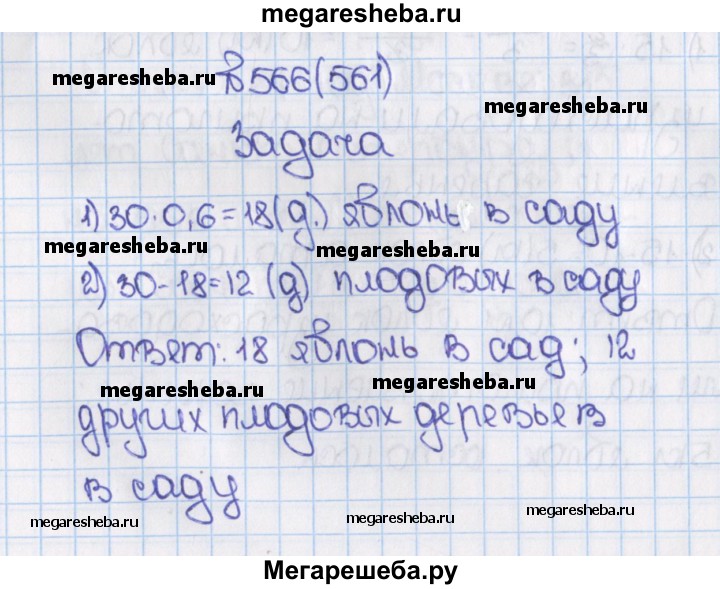 megaresheba.ru
№566(561)
megaresheba.ru
megaresheba.ru
Задача
1) 30·0,6=18(д.) яблонь в саду
megaresheba.ru
megaresheba.ru
2) 30-18=12 (д) плодовых в саду
Ответ: 18 яблонь в сад; 12
megaresheba.ru
megaresheba.ru
других плодовых деревьев
в саду
megaresheba.ru
megaresheba.ru
megaresheba.ru
Мегарешеба.ру